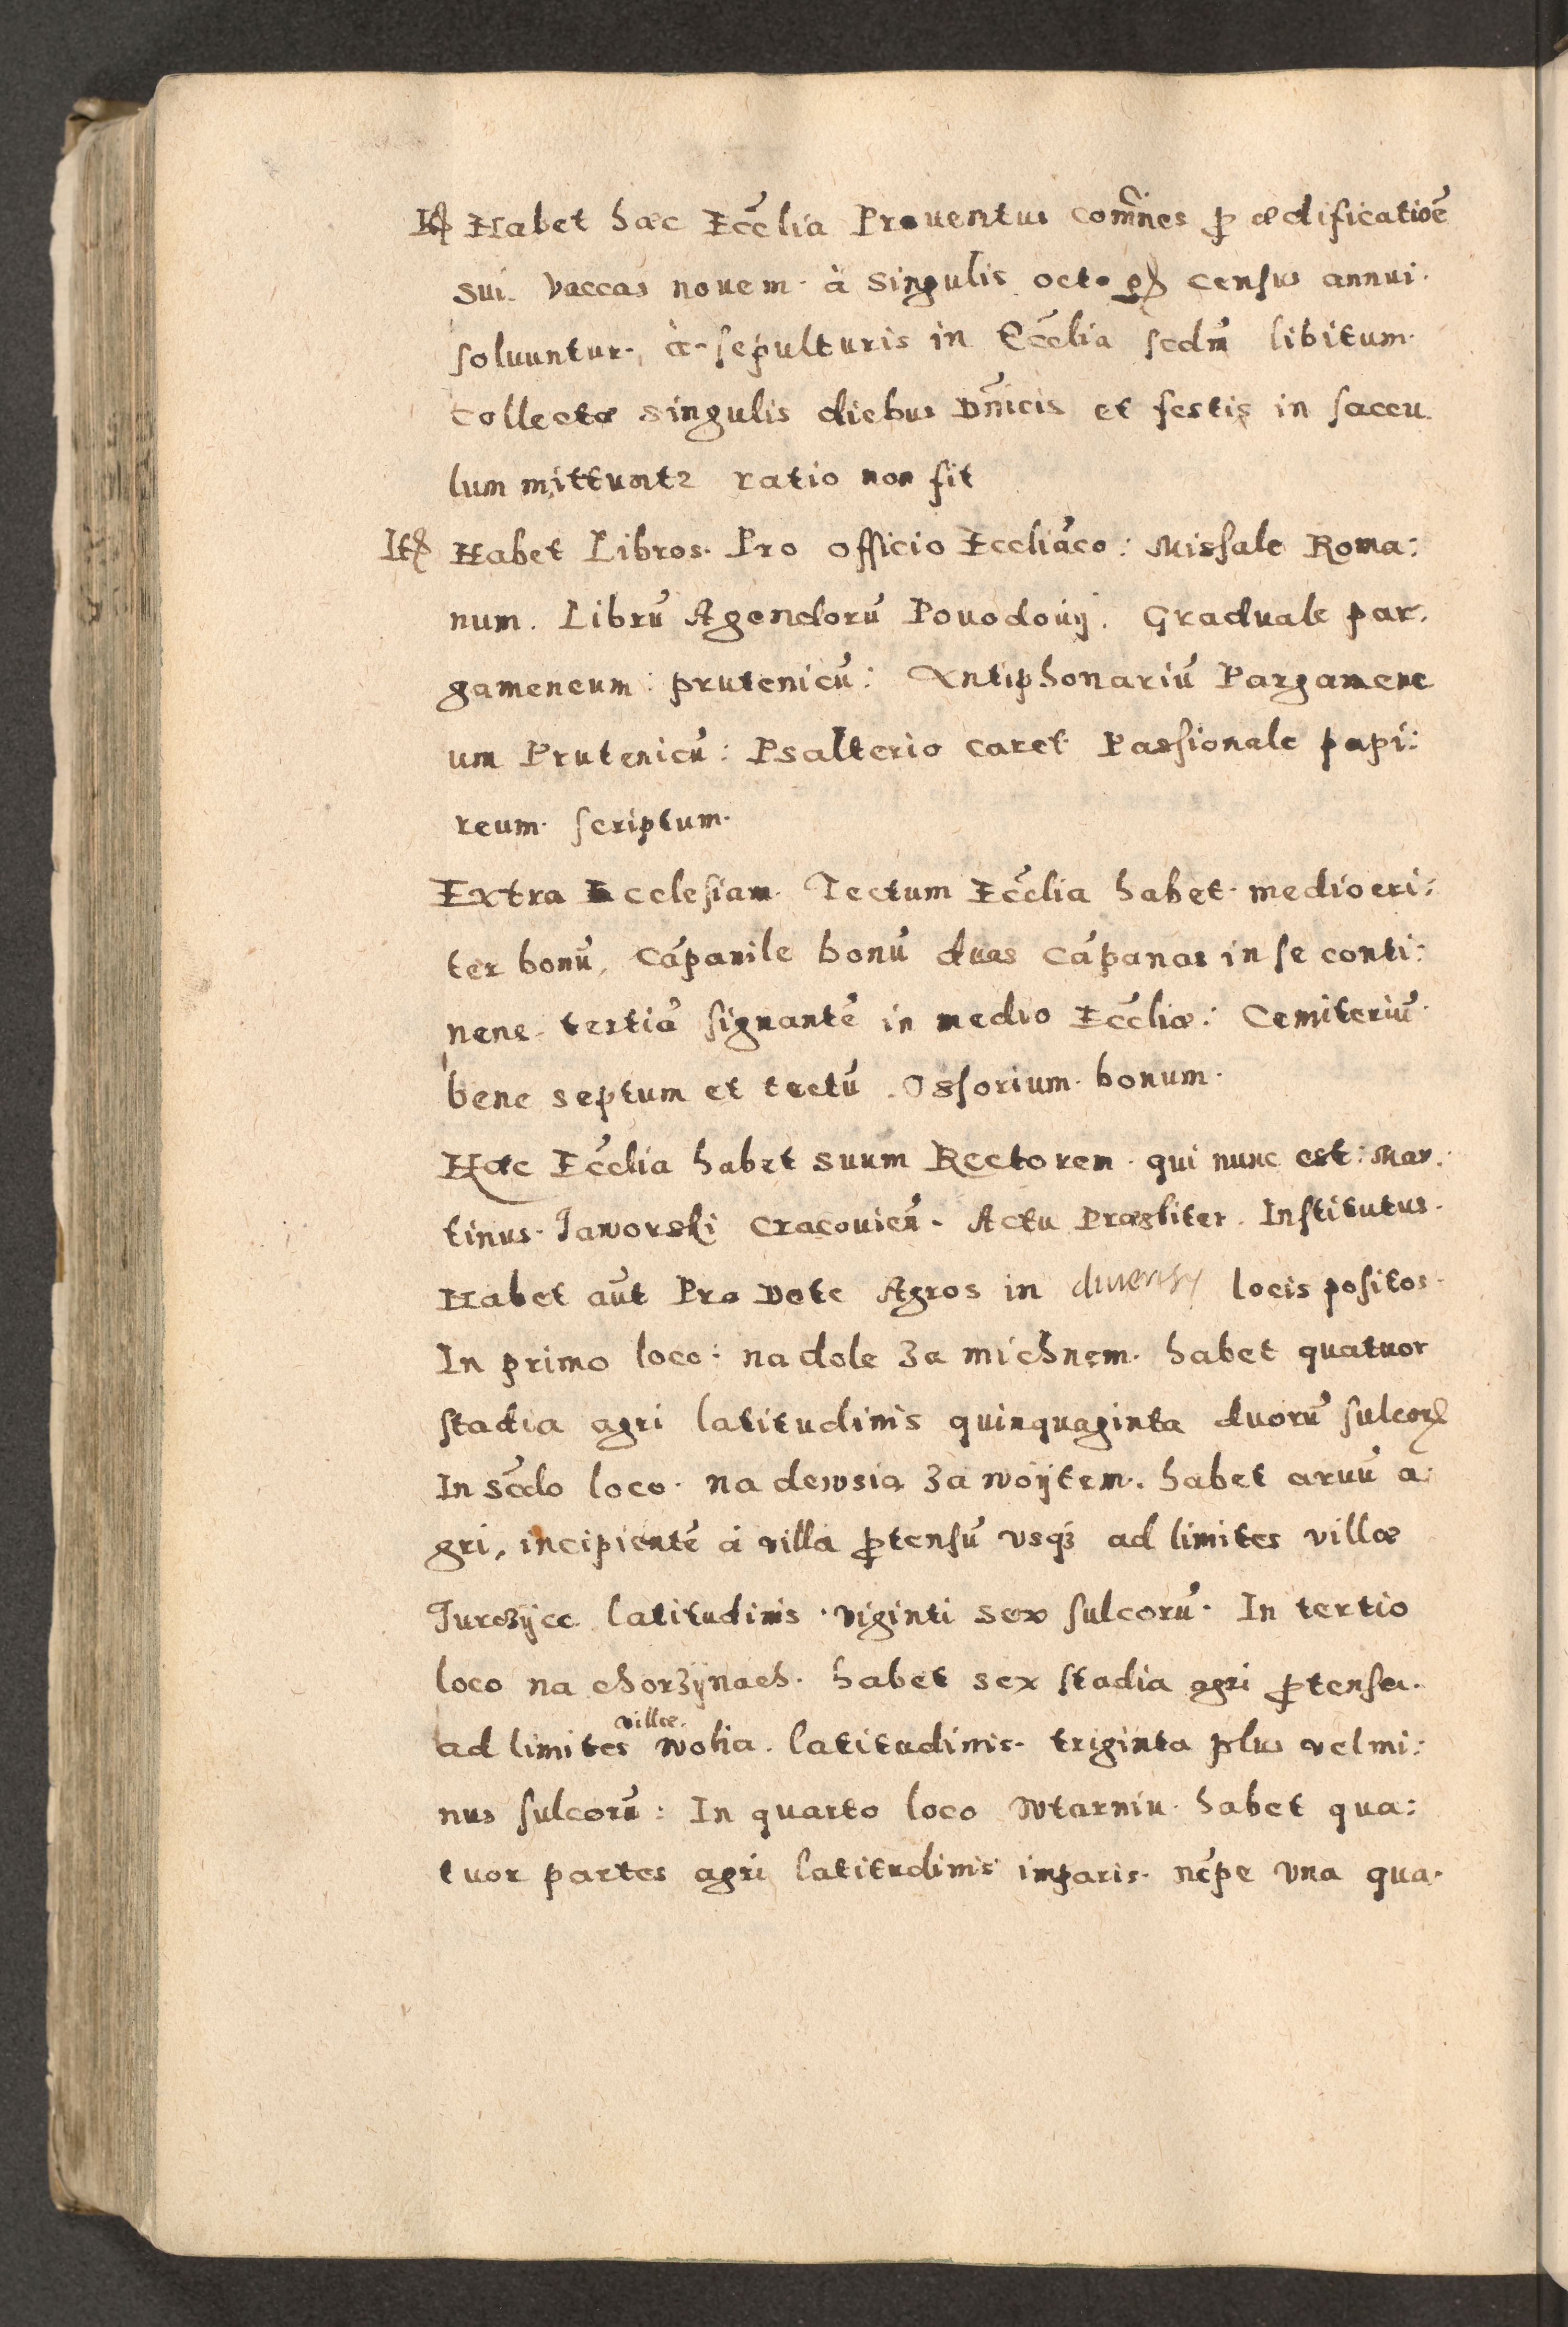 Itē Habet hæc Eccl̄ia Prouentus com̄nes ꝓ ædificatioē
sui. vaccas nouem. à singulis octo gr̄ census annui.
soluuntur, à sepulturis in Eccl̄ia secdū libitum.
Collectæ singulis diebus Dn̄icis et festis in saccu
lum mittuntr ratio non fit
Itē Habet Libros. Pro officio Eccliāco: Missale Roma:
num. Librū Agendorū Pouodouij. Graduale par,
gameneum: prutenicū: Antiphonariū Pargamene
um Prutenicū: Psalterio caret. Passionale papi:
reum. scriptum.
Extra Ecclesiam. Tectum Eccl̄ia habet. mediocri:
ter bonū, Cāpanile bonū duas Cāpanas in se conti:
nens. tertiā signantē in medio Eccl̄iæ: Cemiteriū
bene septum et tectū. Ossorium. bonum.
Hæc Eccl̄ia habet suum Rectorem. qui nunc est: Mar.
tinus. Jaworski Cracouień. Actu Præsbiter. Institutus.
Habet aūt Pro Dote Agros in diuersis locis positos.
In primo loco: na dole za michnem. habet quatuor
stadia agri latitudinis quinquaginta duorū sulcorꝝ
In scdo loco. na dewsia za woijtem. habet aruū a:
gri, incipientē à villa ꝓtensū vsqꝫ ad limites villæ
Jurczijce latitudinis. viginti sex sulcorū. In tertio
loco na chorzijnach. habet sex stadia agri ꝓtensa.
villæ.
ad limites wolia. latitudinis. triginta plus vel mi:
nus sulcorū: In quarto loco Wtarniu. habet qua:
tuor partes agri latitudinis imparis. nēpe vna qua.